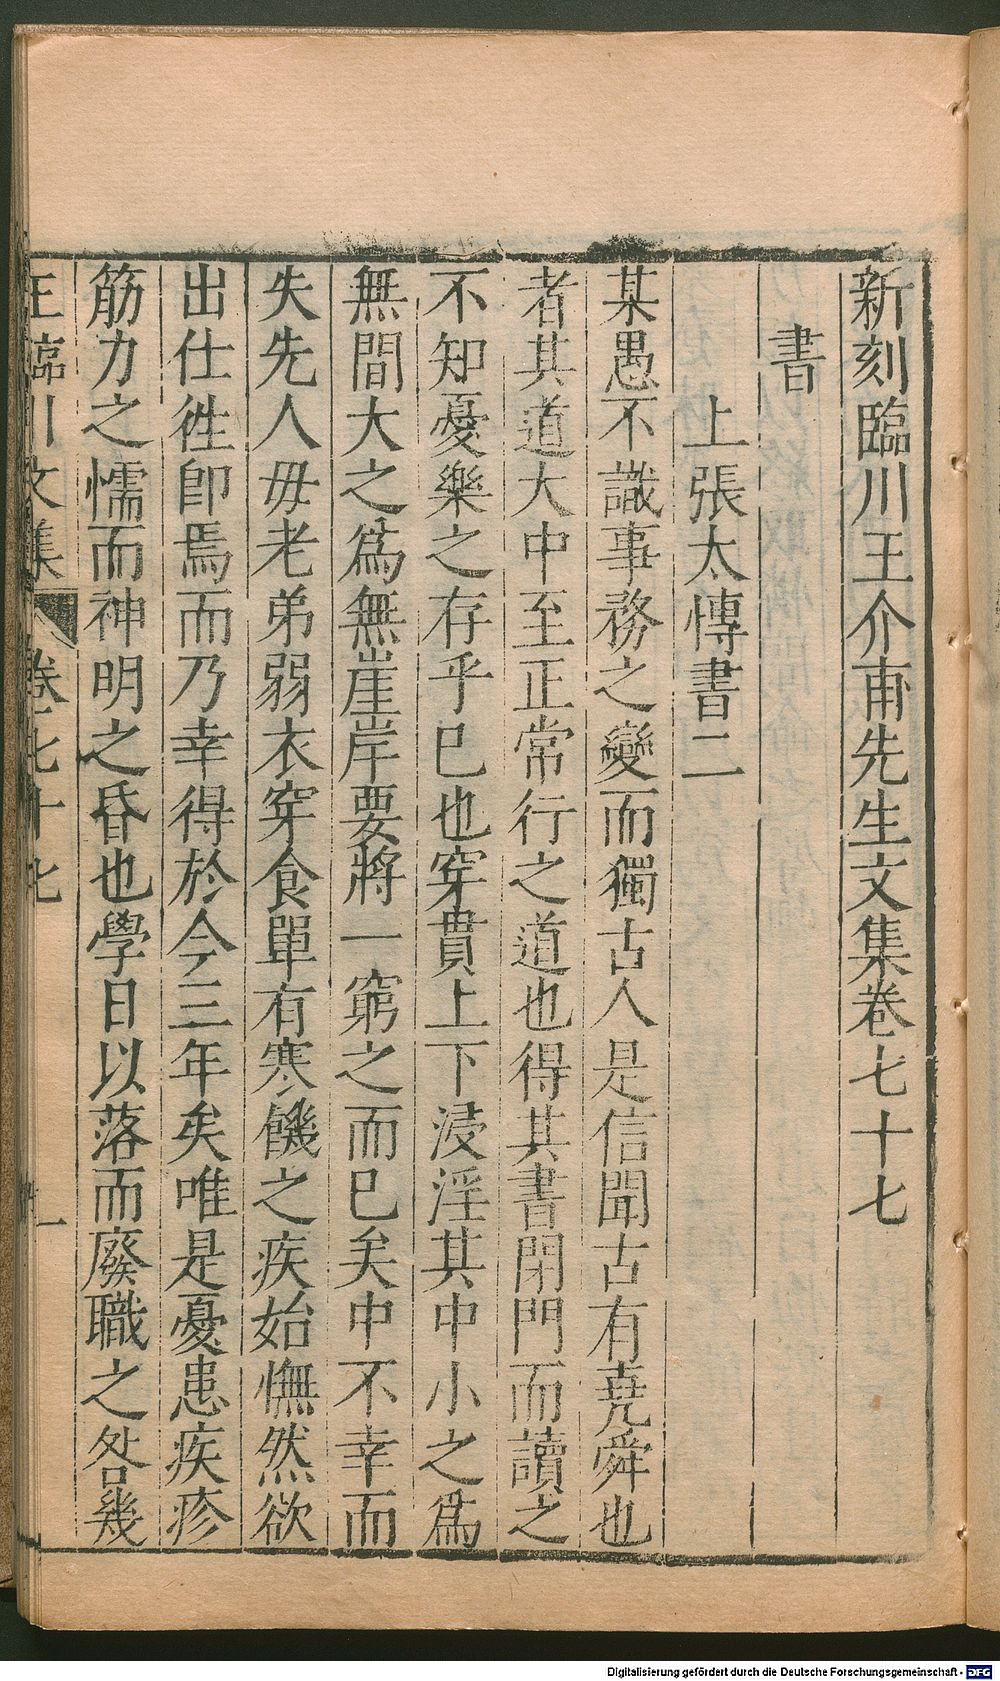 新刻臨川王介甫先生文集卷七十七
書
上張太傅書二
某愚不識事務之變而獨古人是信聞古有堯舜也
者其道大中至正常行之道也得其書閉門而讀之
不知憂樂之存乎已也穿貫上下浸淫其中小之爲
無間大之爲無崖岸要將一窮之而已矣中不幸而
失先人毋老弟弱衣穿食單有寒饑之疾始憮然欲
出仕徃卽焉而乃幸得於今三年矣唯是憂患疾疹
筋力之懦而神明之昏也學日以落而廢職之咎幾
王臨川文集 卷七十七 一
Digitalisierung gefördert durch die Deutsche Forschungsgemeinschaft - DFG